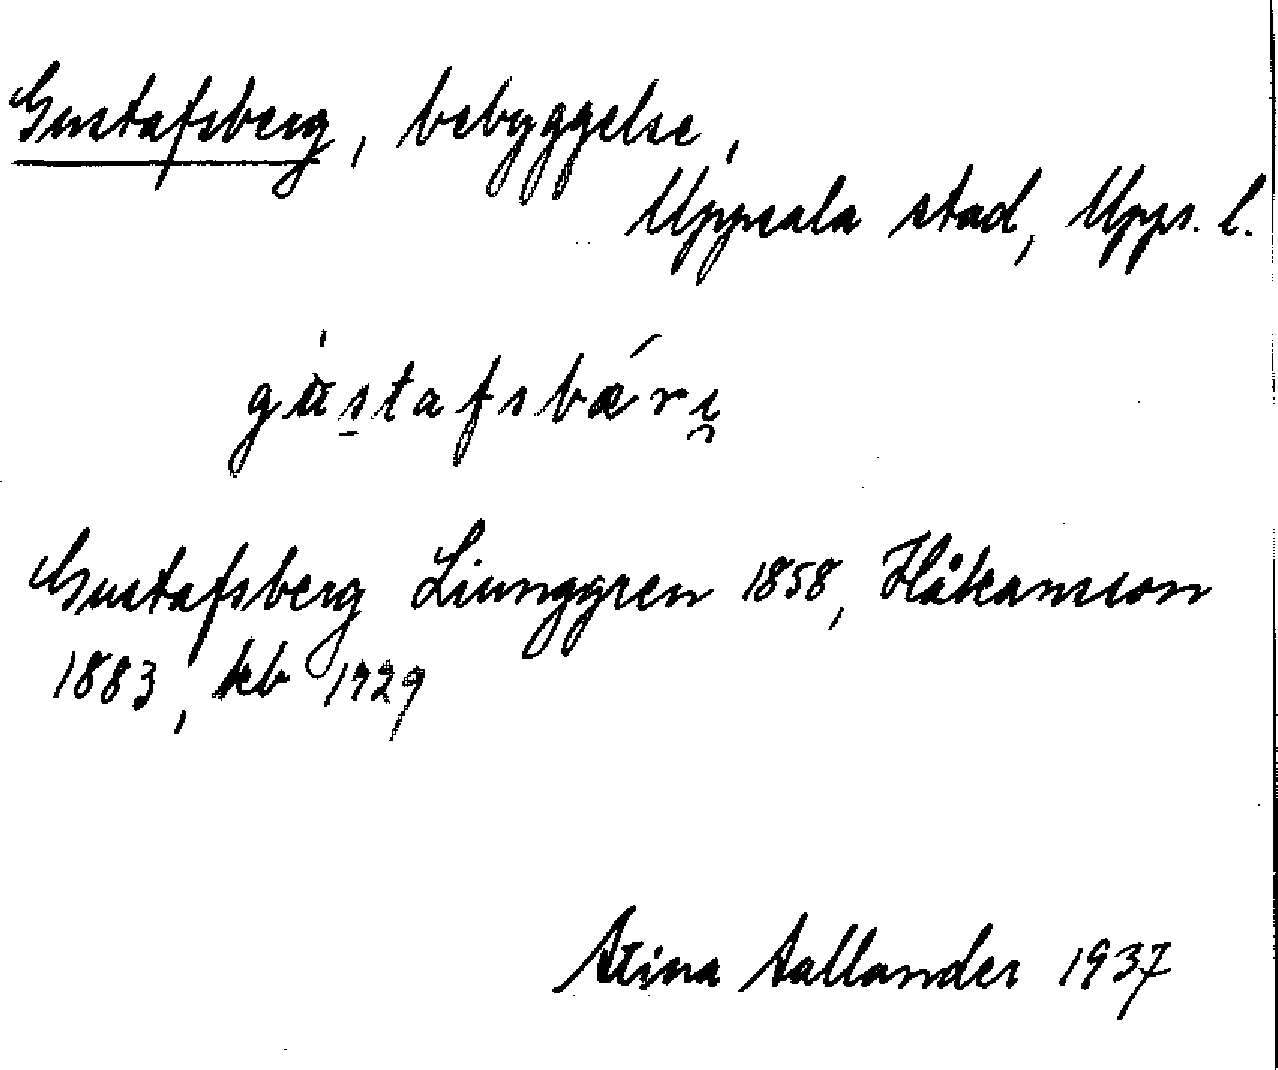 Gustafsberg, bebyggelse,
Uppsala stad, Upps. l.
gustafsbæri̯
Gustafsberg Liunggren 1858, Håkansson
1883, kb 1929
Stina Sallander 1937